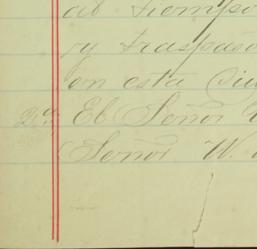 al tiempo
y traspaso
en esta Ciu
2da El Señor
Señor W.